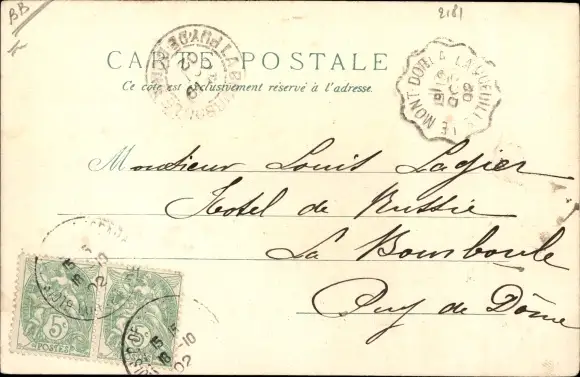 BB
2181
CARTE POSTALE
Ce côté est exclusivement réservé à l'adresse.
LA BOURBOULE
PUY-DE-DOME
LE MONT DORE A LAQUEUILLE
Monsieur Louis Lagier
Hotel de Russie
La Bourboule
Puy de Dôme
5c
POSTES
15
10
02
15
-10
02